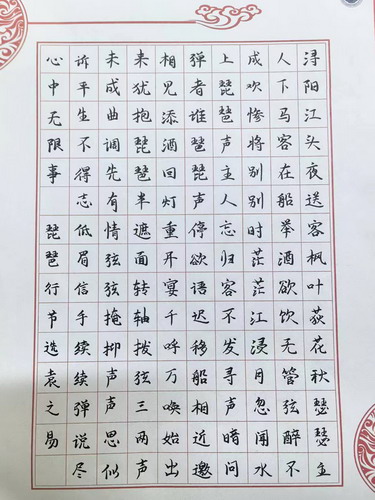 浔阳江头夜送客枫叶荻花秋瑟瑟主
人下马客在船举酒欲饮无管弦醉不
成欢惨将别别时茫茫江浸月忽闻水
上琵琶声主人忘归客不发寻声暗问
弹者谁琵琶声停欲语迟移船相近邀
相见添酒回灯重开宴千呼万唤始出
来犹抱琵琶半遮面转轴拨弦三两声
未成曲调先有情弦弦掩抑声声思似
诉平生不得志低眉信手续续弹说尽
心中无限事 琵琶行节选袁之易